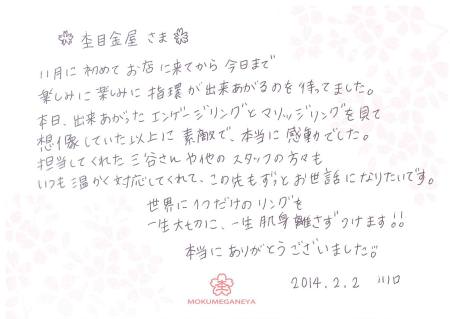 杢目金屋 さま
11月に 初めて お店に来てから 今日まで
楽しみに 楽しみに 指環が出来あがるのを 待ってました。
本日、出来あがった エンゲージリングと マリッジリングを 見て
想像していた以上に 素敵で、本当に 感動でした。
担当してくれた 三谷さんや他の スタッフの方々も
いつも温かく対応してくれて、この先もずっとお世話になりたいです。
世界に1つだけの リングを
一生大切に、一生 肌身離さずつけます!!
本当にありがとうございました。
2014.2.2 川口
MOKUMEGANEYA